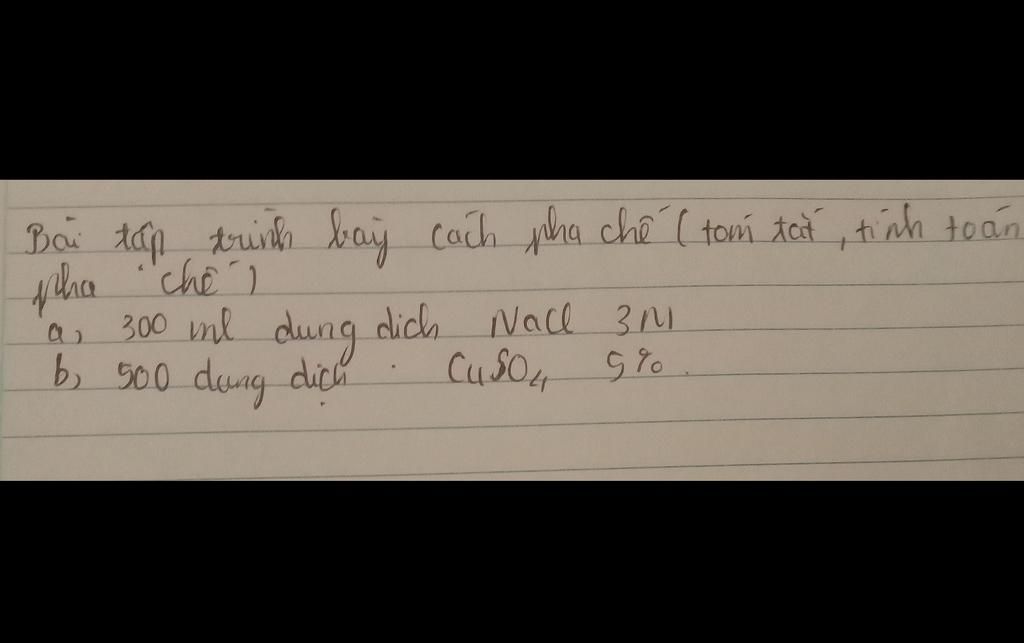 Bài tập trình bày cách pha chế (tóm tắt, tính toán
pha chế)
a, 300 ml dung dịch NaCl 3M
b, 500 dung dịch CuSO4 5%.